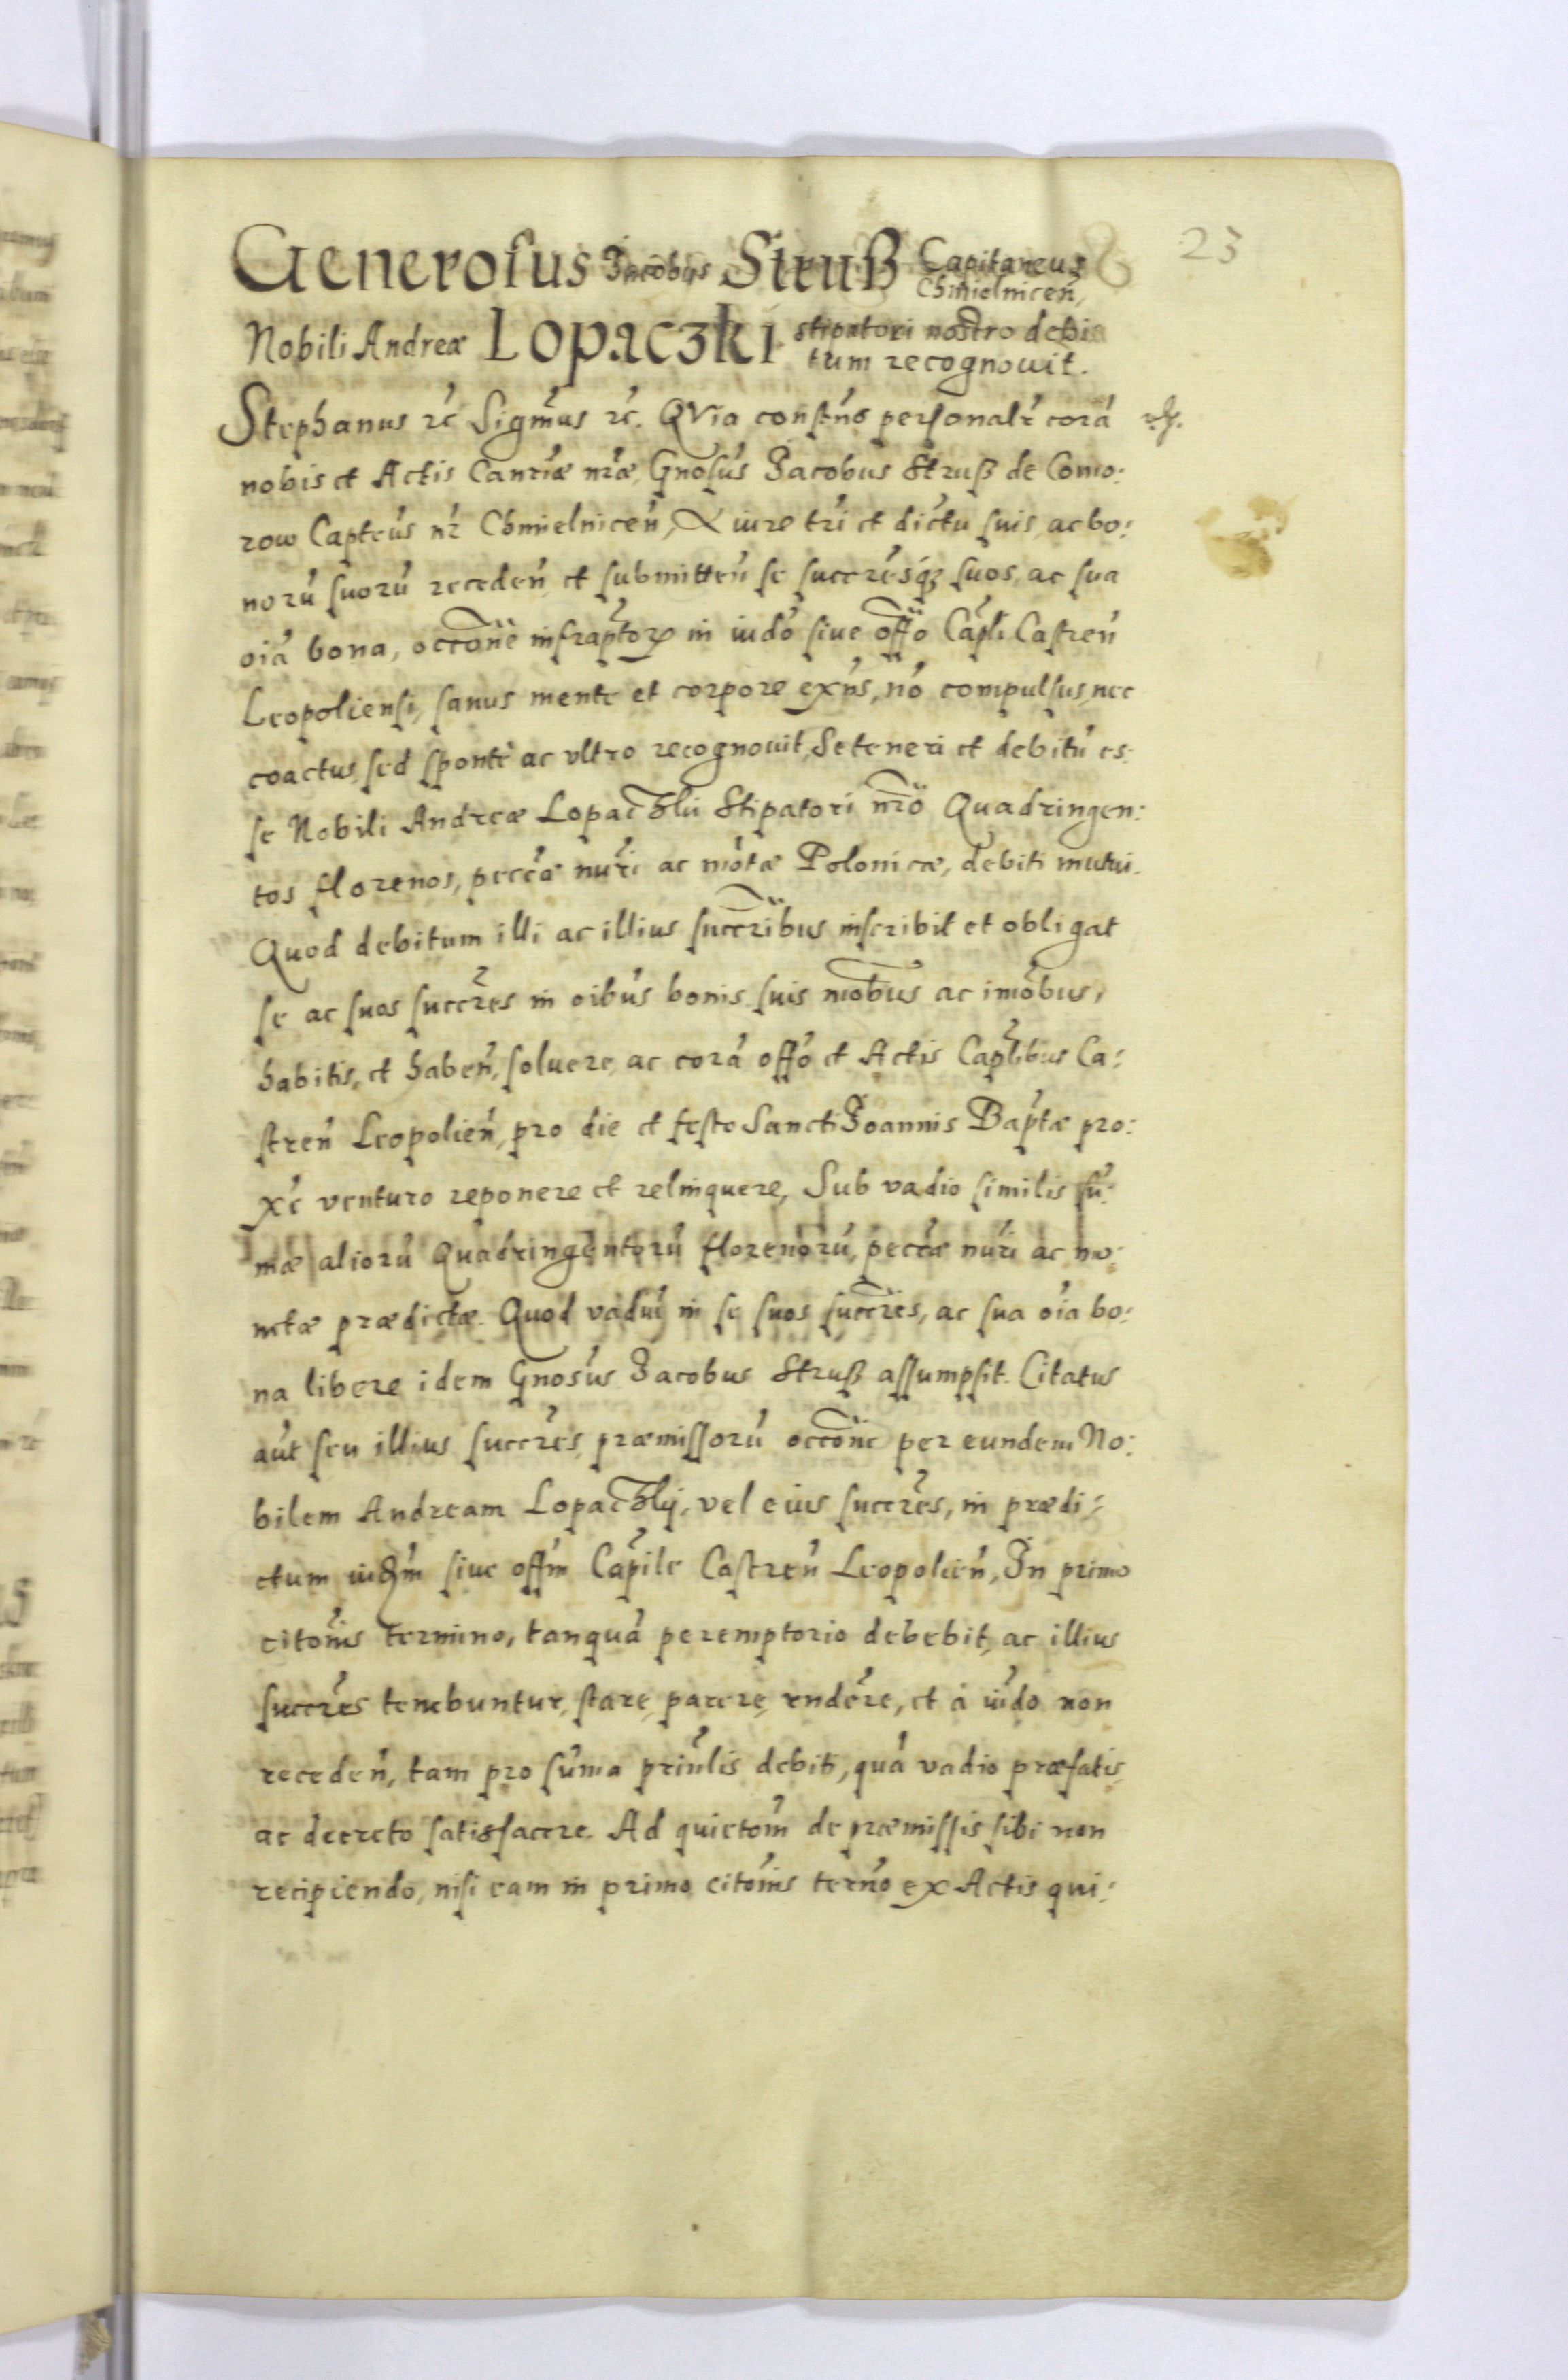 23
Generosus Jacobus Struß Capitaneus
Chmielnicen̄,
Nobili Andreæ Lopaczki stipatori nostro debi
tum recognouit.
Stephanus ꝛc̄ Sigm̄us ꝛc̄. QVia conſtn̄s perſonalr̄ corā
nobis et Actis Canr̄iæ nr̄æ, Gnoſūs Jacobus Struß de Como:
row Capteūs nr̄ Chmielnicen̄, A iure tr̄ri et dictu ſuis, ac bo:
norū ſuorū receden̄, et submitten̄ ſe ſuccr̄esq́ꝫ ſuos, ac ſua
oīa bona, occōne infraptōrꝝ in iudō ſiue offō Capl̄i Caſtren̄
Leopolienſi, ſanus mente et corpore exn̄s, nō compulſus, nec
coactus, ſed ſponte ac vltro recognouit, Se teneri et debitū es:
ſe Nobili Andreæ Lopac̄zkii Stipatori nr̄o Quadringen:
tos florenos, pecc̄æ nur̄i ac mōtæ Polonicæ, debiti mutui.
Quod debitum illi ac illius ſuccr̄ibus inſcribit et obligat
ſe ac ſuos ſuccr̄es in oībus bonis ſuis mōbus ac imōbus,
habitis, et haben̄, ſoluere, ac corā offō et Actis Capl̄ibus Ca:
ſtren̄ Leopolien̄, pro die et feſto Sancti Joannis Bapt̄æ pro:
xē venturo reponere et relinquere, Sub vadio similis ſū:
mæ aliorū Quadringentorū florenorū, pecc̄æ nūri ac mo:
netæ prædictæ. Quod vadiū in ſe ſuos ſuccr̄es, ac ſua oīa bo:
na libere idem Gnosūs Jacobus Struß aſſumpſit. Citatus
aūt ſeu illius ſuccr̄es, præmiſſorū occōne per eundem No:
bilem Andream Lopac̄zkij, vel eius ſuccr̄es, in prædi:
ctum iudm̄ ſiue offm̄ Capīle Caſtren̄ Leopolien̄, In primo
citonīs termino, tanquā peremptorio debebit, ac illius
ſuccr̄es tenebuntur, ſtare, parere, rndēre, et à iūdo non
receden̄, tam pro ſūma prīnlis debiti, quā vadio præfatis,
ac decreto ſatisfacere. Ad quietom̄ de præmiſſis ſibi non
recipiendo, niſi eam in primo citonīs term̄o ex Actis qui: